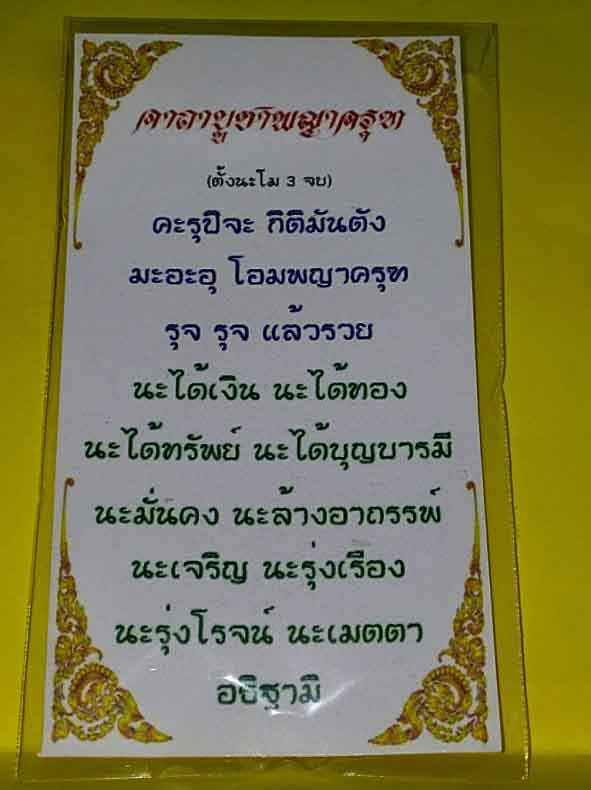 คาถาบูชาพญาครุฑ
(ตั้งนะโม 3 จบ)
คะรุปิจะ กิติมันตัง
มะอะอุ โอมพญาครุฑ
รุจ รุจ แล้วรวย
นะได้เงิน นะได้ทอง
นะได้ทรัพย์ นะได้บุญบารมี
นะมั่นคง นะล้างอาถรรพ์
นะเจริญ นะรุ่งเรือง
นะรุ่งโรจน์ นะเมตตา
อธิฐามิ